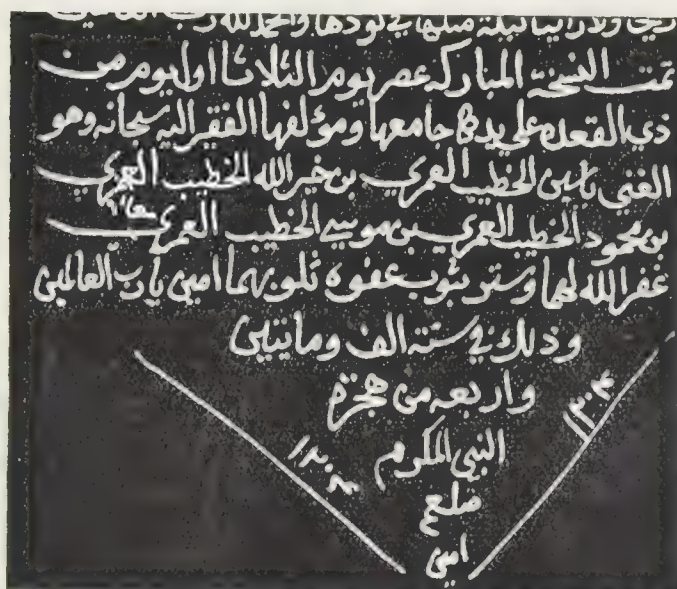 تمت النسخة المباركه عصر يوم الثلاثا اول يوم من
ذي القعده على يد جامعها ومؤلفها الفقير اليه سبحانه وهو
الغني ياسين الخطيب العمري بن خير الله الخطيب العمري
بن محمود الخطيب العمري بن موسى الخطيب العمري
غفر الله لهما وستر بثوب عفوه ذنوبهما امين يا رب العالمين
وذلك في سنة الف وماتيين
واربعه من هجرة
النبي المكرم
صلعم
امين
١٢٠٤
١٢٠٤